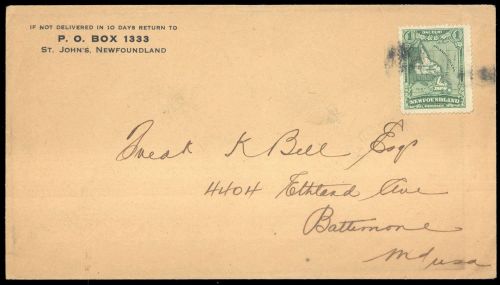 IF NOT DELIVERED IN 10 DAYS RETURN TO
P. O. BOX 1333
ST. JOHN'S, NEWFOUNDLAND
1 1
NEWFOUNDLAND
K Bell Esq
4404 Ave
Baltimore
Md usa